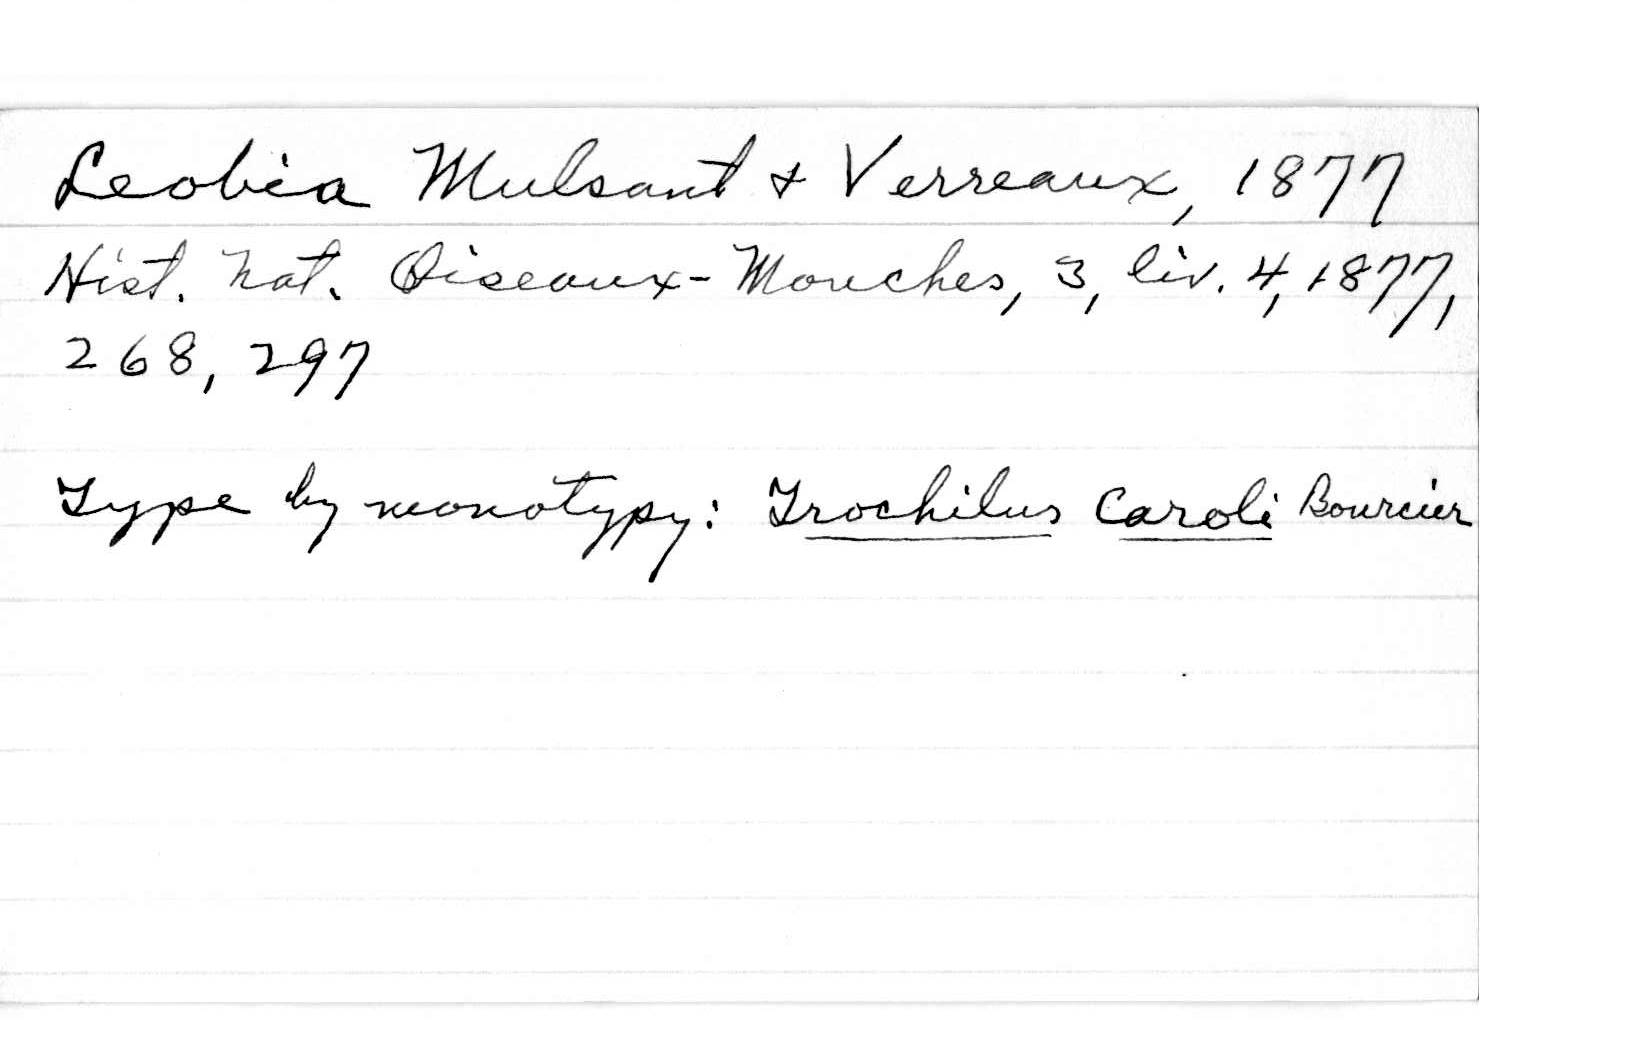 Leobia Mulsant & Verreaux, 1877
Hist. Nat. Oiseaux-Mouches, 3, liv. 4, 1877,
268, 297
Type by monotypy: Trochilus Caroli Bourcier